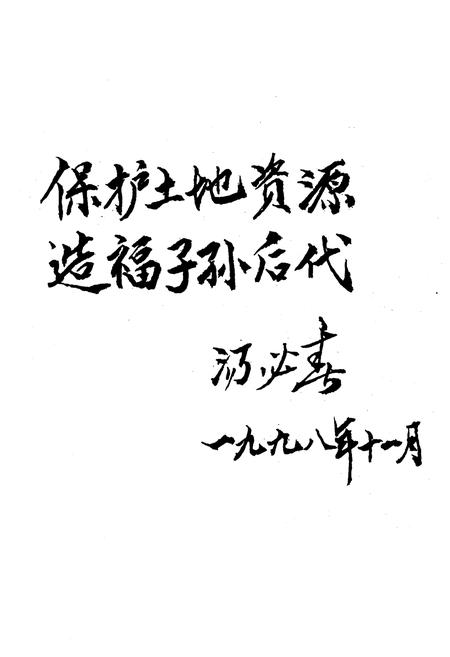 保护土地资源
造福子孙后代
必春
一九九八年十一月